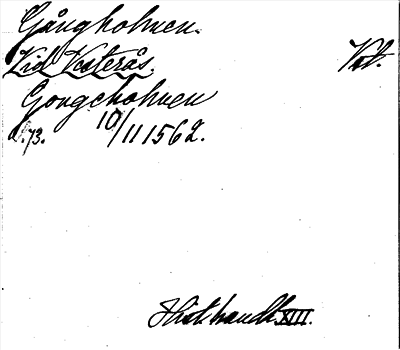 Gångholmen.
Vid Vesterås. Vst.
Gongeholmen
s. 73. 10/11 1562.
Hist. handl. XIII.